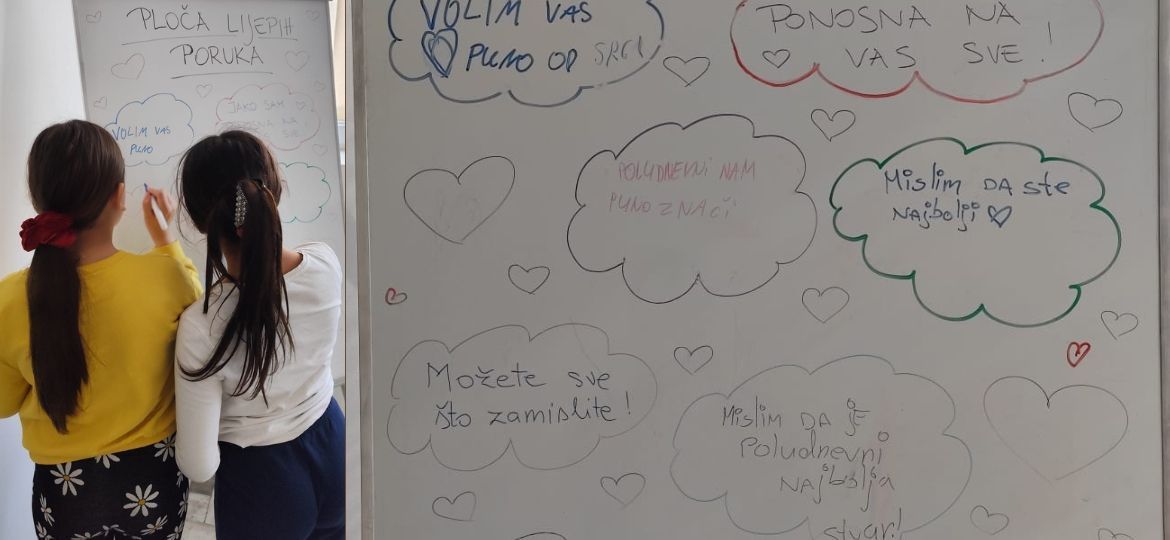 PLOČA LIJEPIH
PORUKA
VOLIM VAS
PUNO
JAKO SAM
NA
VOLIM VAS
PUNO OD SRCA
PONOSNA NA
VAS SVE!
POLUDNEVNI NAM
PUNO ZNAČI
Mislim DA ste
NAjbolji
Možete sve
što zamislite!
Mislim DA je
Poludnevni
NAjbolja
stvar!